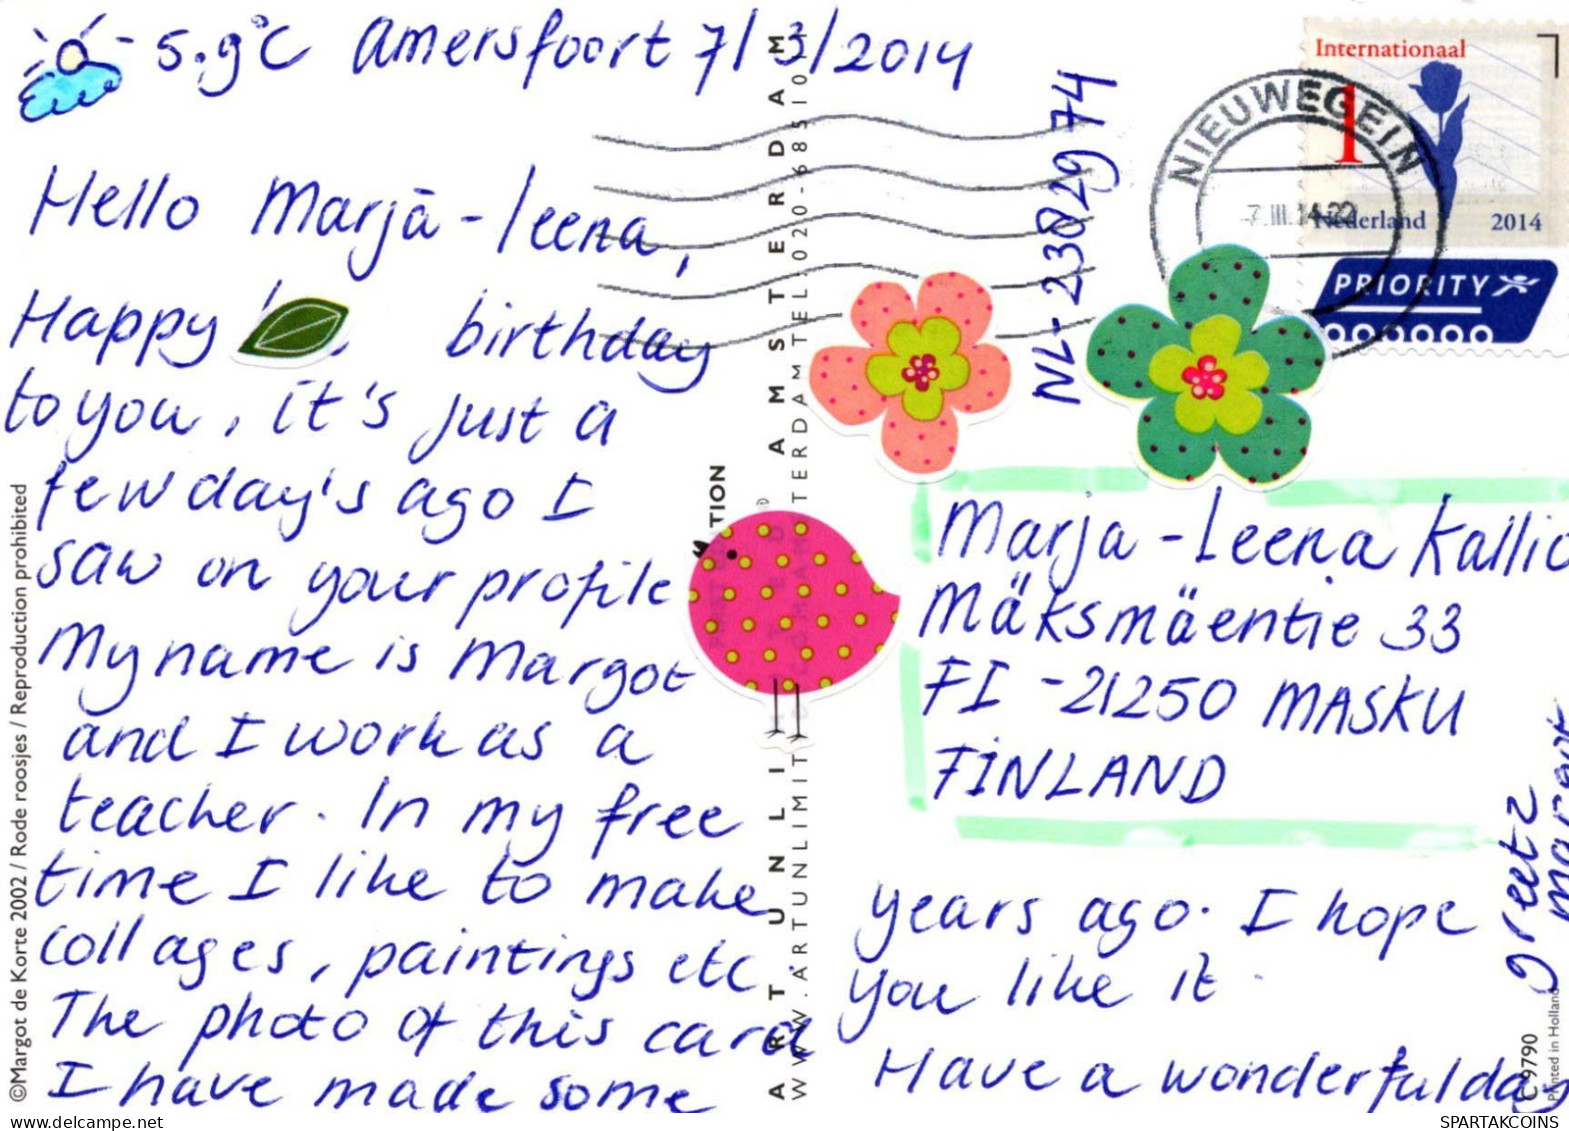 5.9°C Amersfoort 7/3/2014
Hello Marjā-leena,
Happy birthday
to you, it's just a
few day's ago I
saw on your profile
My name is Margot
and I work as a
teacher. In my free
time I like to make
collages, paintings etc
The photo of this card
I have made some
years ago. I hope
you like it.
Have a wonderful day
greetz
margot
NL-2382974
Marja-Leena Kallio
Mäksmäentie 33
FI-21250 MASKU
FINLAND
Internationaal
1
Nederland 2014
PRIORITY
NIEUWEGEIN
7.III.14-22
©Margot de Korte 2002 / Rode roosjes / Reproduction prohibited
ART UNLI AMSTERDAM
WWW.ARTUNLIMIT TERDAM TEL:020-6851010
TION
C 9790
Printed in Holland
marja-leena-kallio2
SPARTAKCOINS